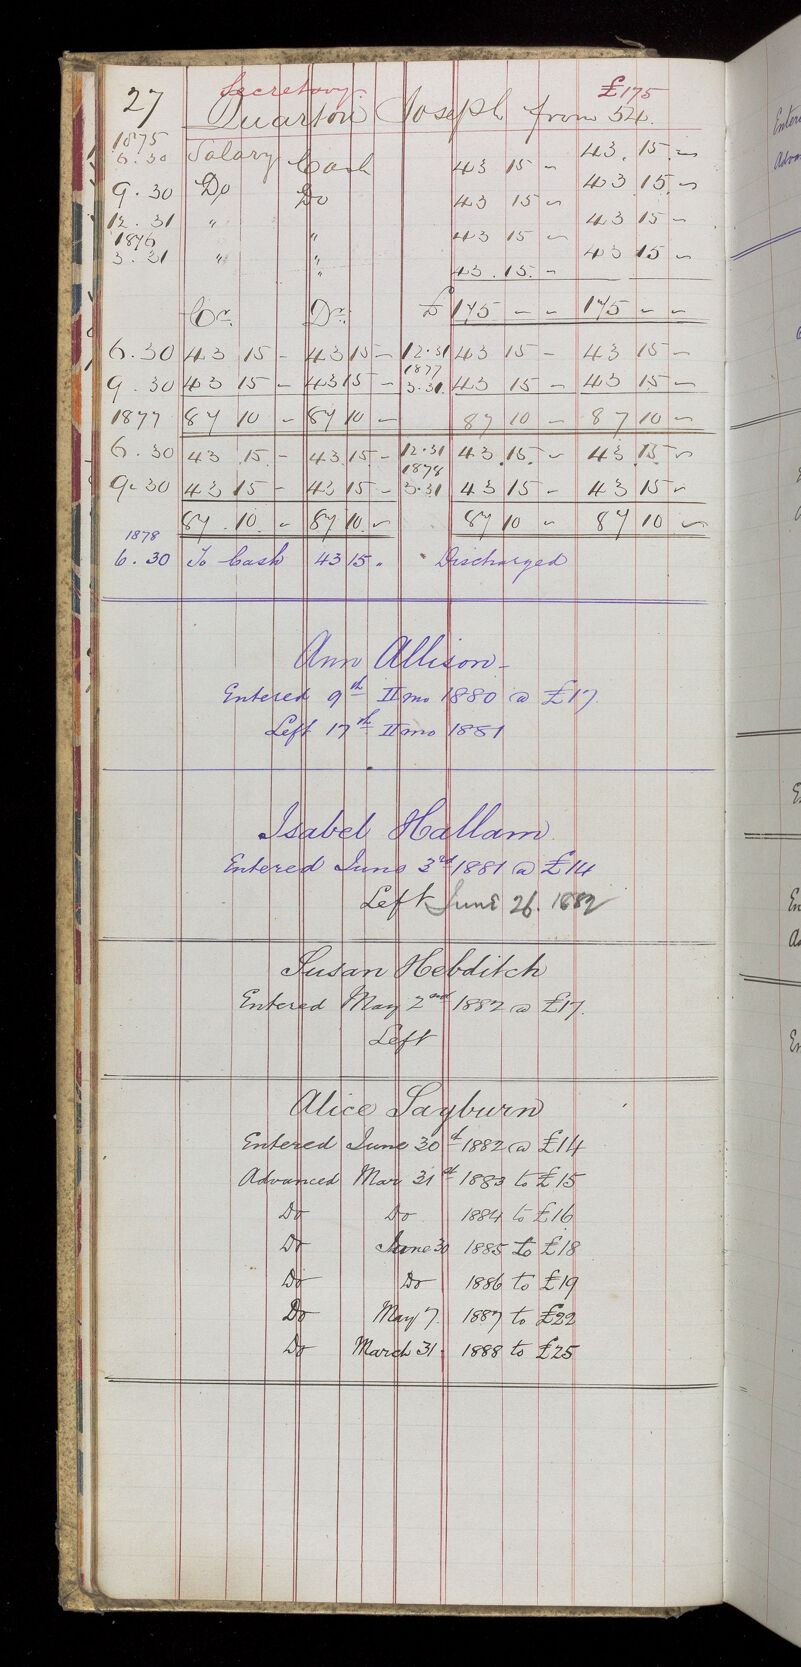 27 Secretary £175
Quarton Joseph from 54.
1875
6.30 Salary Cash 43 15 - 43. 15. -
9.30 Do Do 43 15 - 43 15. -
12.31 " " 43 15 - 43 15 -
1876
3.31 " " 43. 15. - 43 15 -
"
Cr. Dr. £ 175 - - 175 - -
6.30 43 15 - 43 15 - 12.31 43 15 - 43 15 -
1877
9.30 43 15 - 43 15 - 3.31. 43 15 - 43 15 -
1877 87 10 - 87 10 - 87 10 - 87 10 -
6.30 43 15 - 43 15 - 12.31 43 15 - 43 15 -
1878
9.30 43 15 - 43 15 - 3.31 43 15 - 43 15 -
87 10 - 87 10 - 87 10 - 87 10 -
1878
6.30 To Cash 43 15 " Discharged
Ann Allison -
Entered 9th II mo 1880 @ £17.
Left 17th II mo 1881
Isabel Hallam
Entered June 3rd 1881 @ £14
Left June 26. 1882
Susan Hebditch
Entered May 2nd 1882 @ £17.
Left
Alice Sayburn
Entered June 30d 1882 @ £14
Advanced Mar 31st 1883 to £15
Do Do 1884 to £16
Do June 30 1885 to £18
Do Do 1886 to £19
Do May 7. 1887 to £22
Do March 31. 1888 to £25